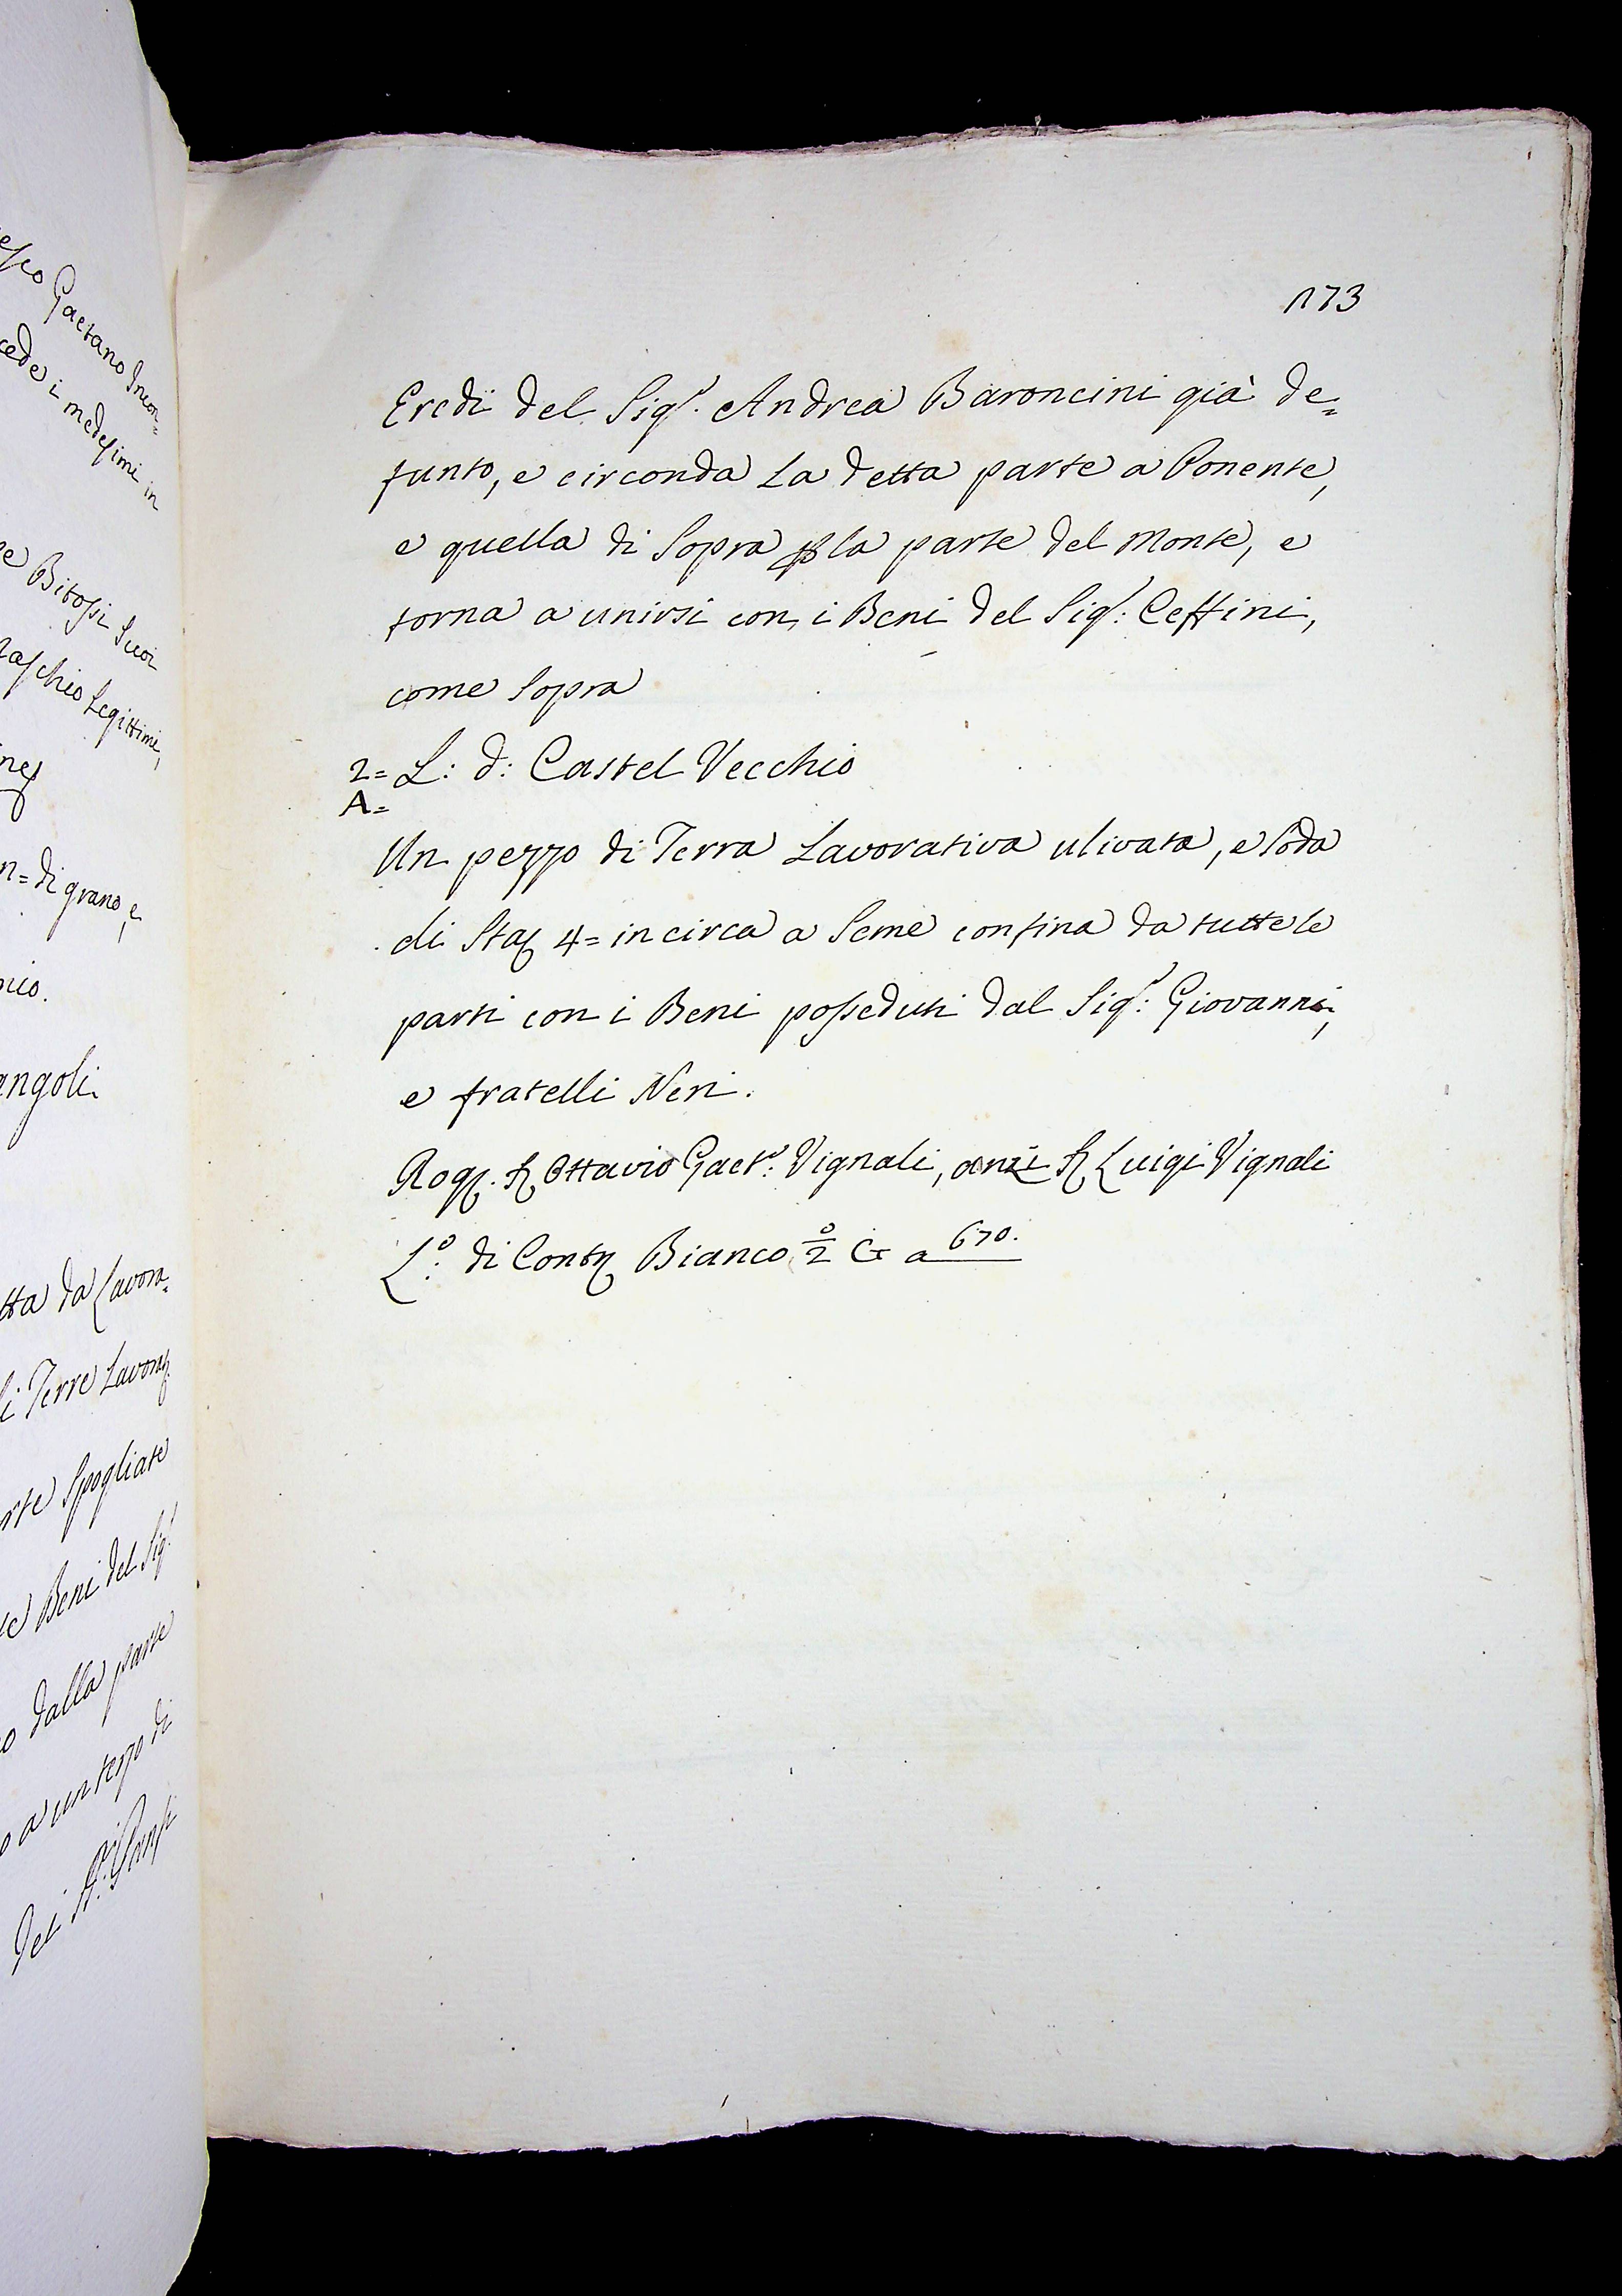 esco Gaetano Incon=
cede i medesimi in
e Bitossi Suoi
aschio Legittimi,
n= di grano, e
nio.
angoli.
tta da Lavora=
i Terre Lavor
rte Spogliate
e Beni del Sig.
o dalla parte
o a un terzo di
173
Eredi del Sig.r Andrea Baroncini già de=
funto, e circonda La detta parte a Ponente,
e quella di Sopra p la parte del Monte, e
torna a unirsi con i Beni del Sig.r: Ceffini,
come Sopra
2= L: d: Castel Vecchio
A=
Un pezzo di Terra Lavorativa ulivata, e Soda
di Sta 4= in circa a Seme confina da tutte le
parti con i Beni posseduti dal Sig.r: Giovanni,
e fratelli Neri.
Rog. Ottavio Gaet.o: Vignali, Luigi Vignali
L.o: di Contr Bianco 2.o G a 670.